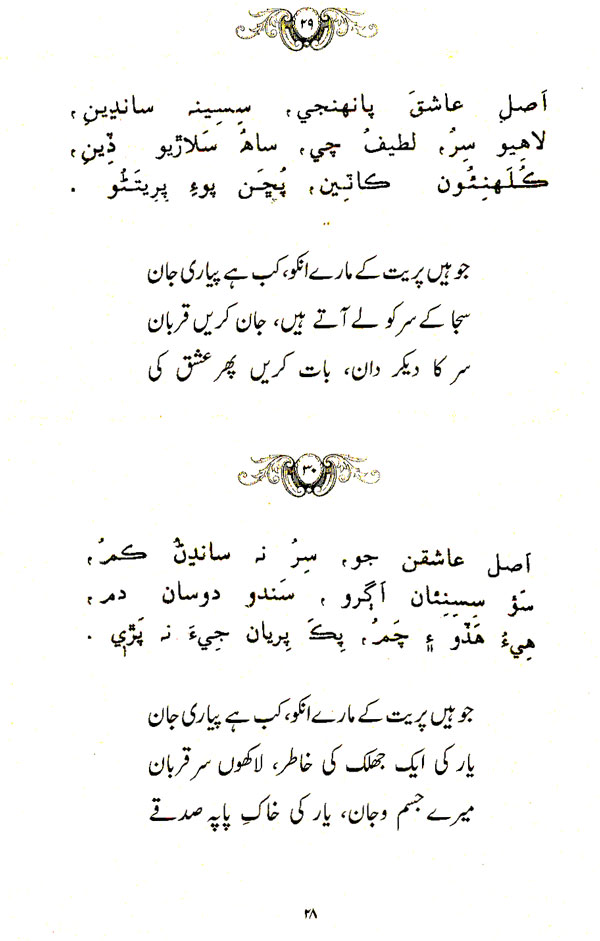 ۲۹
اَصلِ عاشقَ پانهنجي، سِسِينہ سانڍِينِ،
لاهِيو سِرُ، لطيفُ چي، ساهُ سَلاڙيو ڏِينِ،
ڪُلَهنِئُون ڪاٽِين، پُڇَن پوءِ پِريتَڻُو .
جو ہیں پریت کے مارے انکو، کب ہے پیاری جان
سجا کے سر کو لے آتے ہیں، جان کریں قربان
سر کا دیکر دان، بات کریں پھر عشق کی
۳۰
اَصل عاشقن جو، سِرُ نہ سانڍِڻُ ڪمُ،
سَؤ سِسِيِنئان اَڳرو، سَندو دوسان دم،
هِيءُ هَڏو ۽ چَمُ، پِڪَ پِريان جِيءَ نہ پَڙي .
جو ہیں پریت کے مارے انکو، کب ہے پیاری جان
یار کی ایک جھلک کی خاطر، لاکھوں سر قربان
میرے جسم و جان، یار کی خاکِ پاپہ صدقے
۲۸